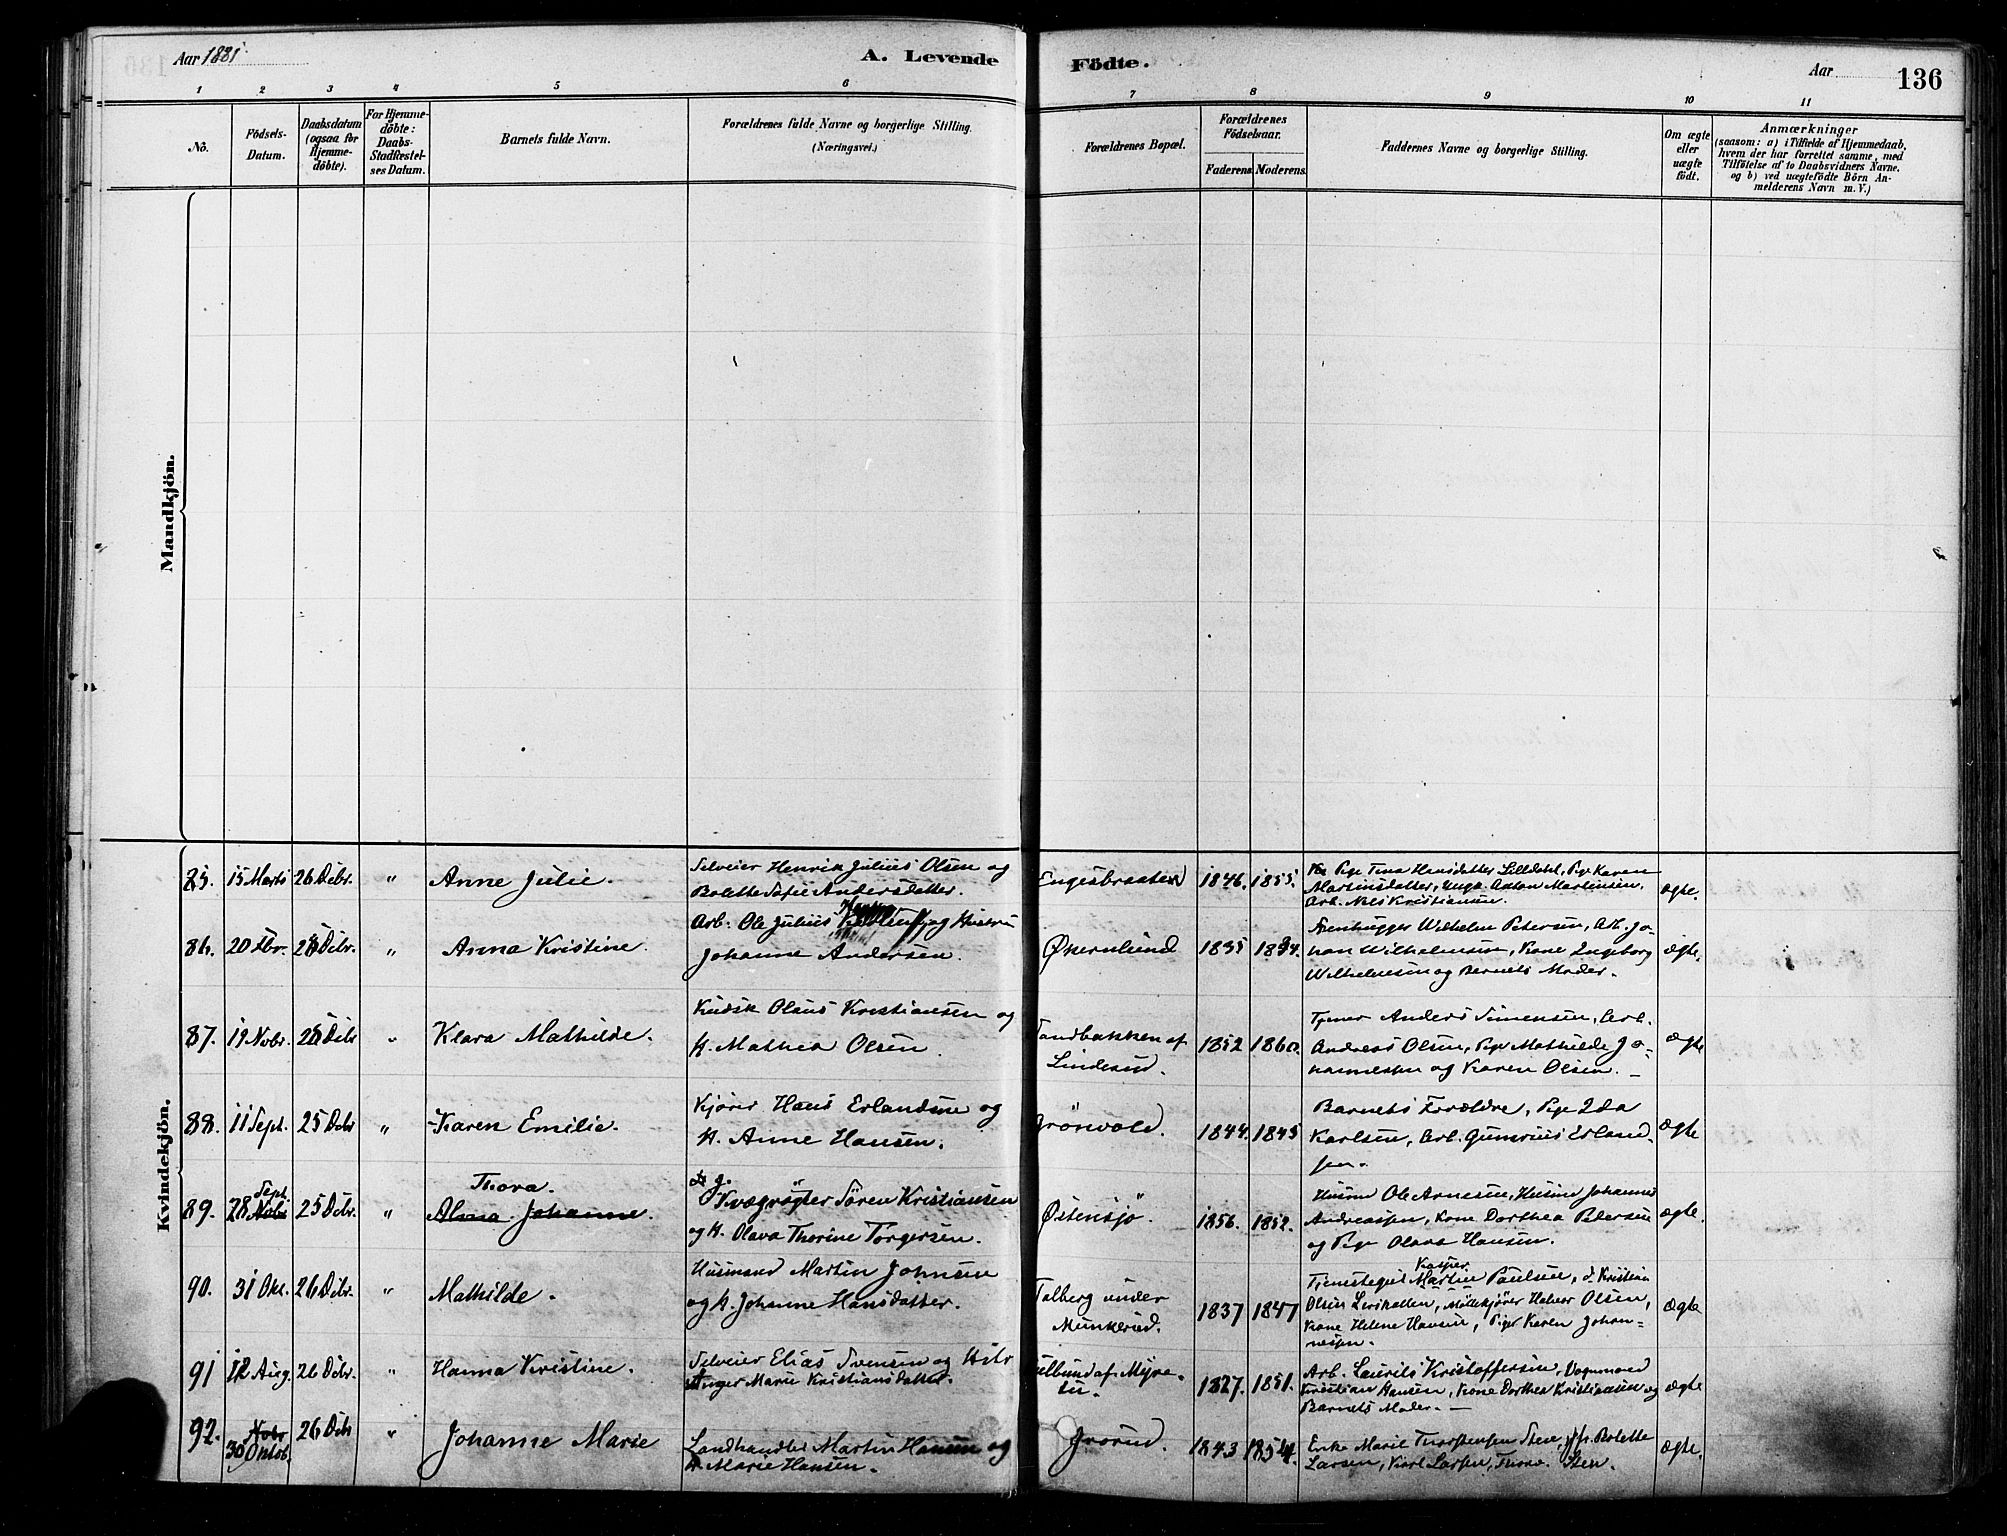 Aar 1881.
A. Levende
Födte.
Aar
136
1 2 3 4 5 6 7 8 9 10 11
No.
Födsels-Datum.
Daabsdatum (ogsaa for Hjemmedöbte).
For Hjemmedöbte: Daabs-Stadfæstelses Datum.
Barnets fulde Navn.
Forældrenes fulde Navne og borgerlige Stilling.
(Næringsvei.)
Forældrenes Bopæl.
Forældrenes Födselsaar.
Faderens. Moderens.
Faddernes Navne og borgerlige Stilling.
Om ægte eller uægte födt.
Anmærkninger
(saasom: a) i Tilfælde af Hjemmedaab,
hvem der har forrettet samme, med
Tilföielse af to Daabsvidners Navne.
og b) ved uægtefödte Börn Anmelderens Navn m. V.)
Mandkjön.
Kvindekjön.
85. 15 Marts 26 Debr. " Anne Julie. Selveier Henrik Julius Olsen og
Bolette Sofie Andersdatter. 1846. 1855. Pige Tina Hansdatter Lilledal, Pige Karen
Martinsdatter, Unga. Anton Martinsen,
Arb. Nils Kristiansen. ægte.
86. 20 Debr. " Anna Kristine. Arb. Ole Julius og Hustru
Johanne Andersen. Økernlund 1835 Stenhugger Wilhelm Petersen, Arb. Jo-
han Wilhelmsen, Kone Ingeborg
Wilhelmsen og Barnets Moder. ægte.
87. 19 Novbr. Debr " Klara Mathilde. Kudsk Olaus Kristiansen og
K. Mathea Olsen. Sandbakken af
Linderud. 1852 1860. Tjener Anders Simensen, Arb.
Andreas Olsen, Pige Mathilde Jo-
hannessen og Karen Olsen. ægte
88. 11 Sept. 25 Debr " Karen Emilie. Kjörer Hans Erlandsen og
K. Anne Hansen. Grönvold. 1844. 1845 Barnets Forældre, Pige Ida
Karlsen, Arb. Gunerius Erland-
sen. ægte
89. 28 Sept. 25 Debr. " Thora.
Alma Johanne. Kvægrögter Sören Kristiansen
og K. Olava Thorine Torgersen. Østensjö. 1856. 1852. Husmd Ole Arnesen, Husmd Johannes
Andreassen, Kone Dorthea Petersen
og Pige Olava Hansen. ægte.
90. 31 Okt. 26 Debr. " Mathilde. Husmand Martin Johnsen
og K. Johanne Hansdatter. Talberg under
Munkerud. 1837 1847 Kasper
Tjenestegut Martin Paulsen, d. Kristian
Olsen, Möllekjörer Halvor Olsen,
Kone Helene Hansen, Pige Karen Johan-
nesen. ægte
91 12 Aug. 26 Debr. " Hanna Kristine. Selveier Elias Svensen og Hstr
Inger Marie Kristiansdatter. 1827. 1851. Arb. Laurits Kristoffersen, Vognmand
Kristian Hansen, Kone Dorthea Kristiansen og
Barnets Moder. ægte
92. Novbr
30 Oktob. 26 Debr " Johanne Marie Landhandler Martin Hansen og
K. Marie Hansen. Grorud. 1843 1854. Enke Marie Thorstensen Steen, Bolette
Larsen, Karl Larsen, Thora Sten. ægte.